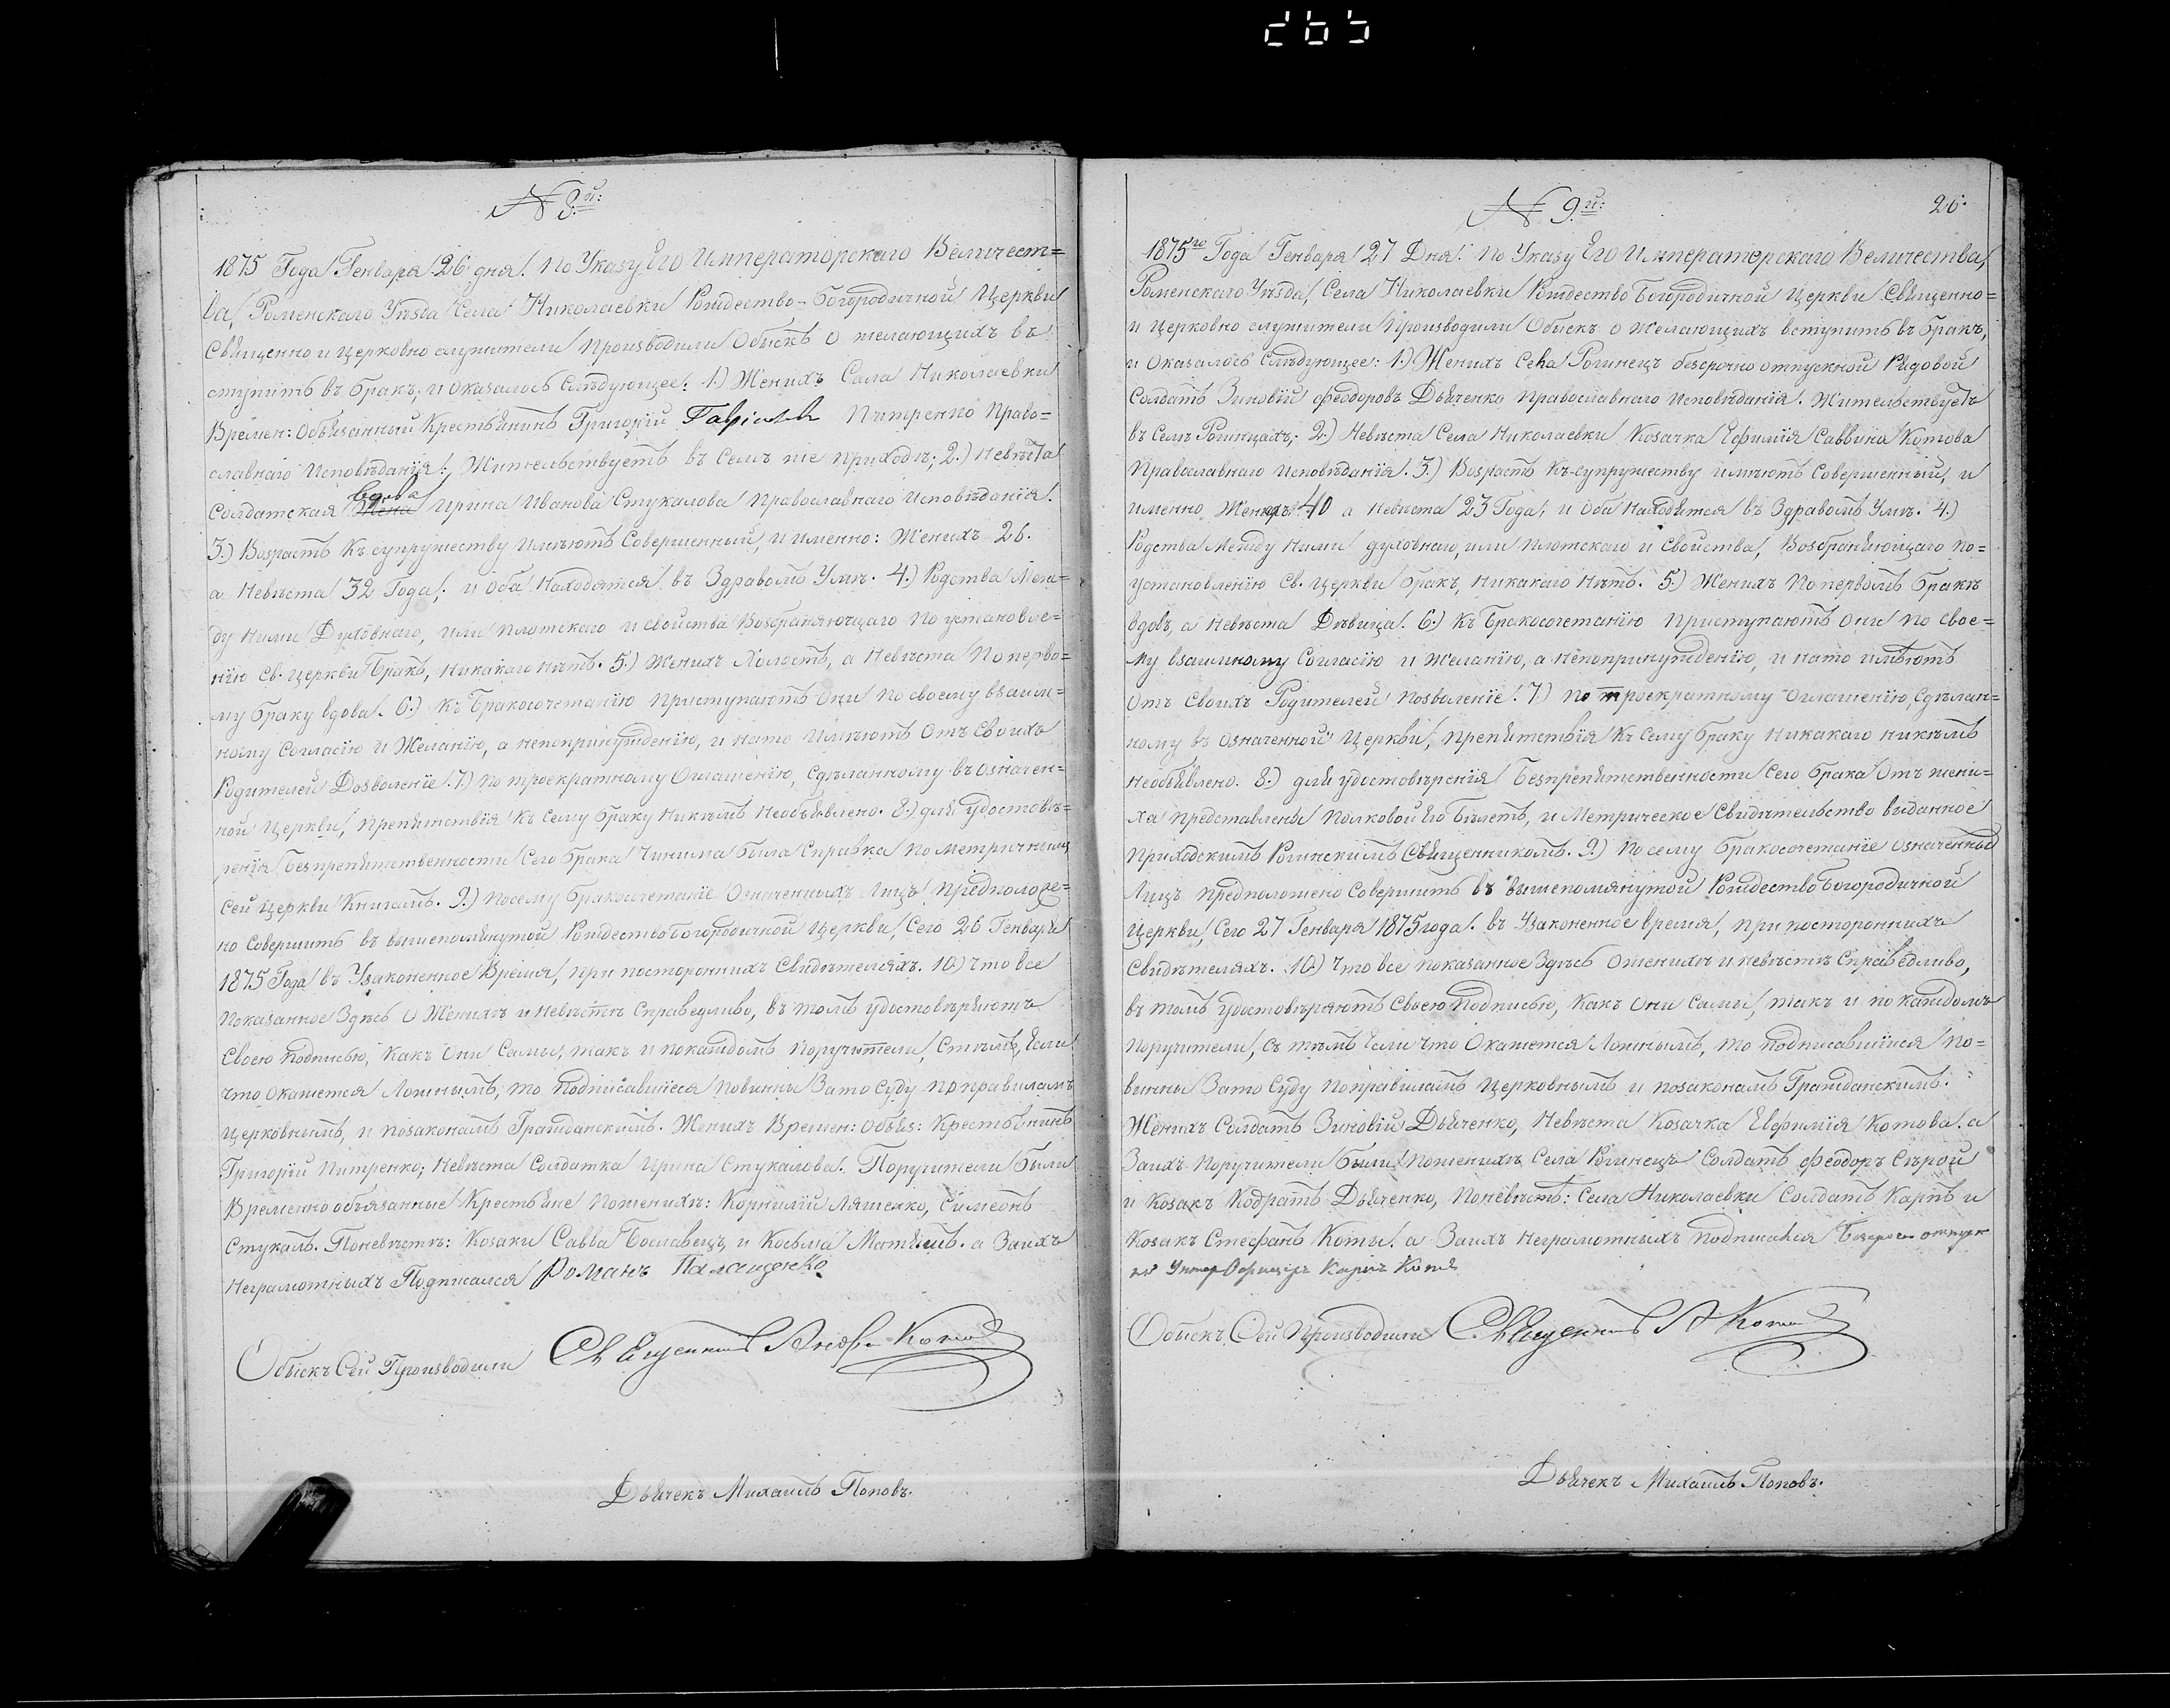 265
N 8й:
1875 Года Генваря 26 дня. По Указу Его Императорскаго Величест=
ва, Роменскаго Уѣзда Села Николаевки Рождество-Богородичной Церкви
Священно и церковно служители производили Обыскъ о желающихъ в
ступить въ бракъ; и оказалось слѣдующее: 1.) Женихъ Села Николаевки
Времен: Обязанный Крестьянинъ Григорій Питренко Право=
славнаго исповѣданія; Жительствуетъ въ семъ же приходѣ; 2.) Невѣста
Солдатская вдова Ирина Иванова Стукалова Православнаго исповѣданія.
3.) Возрастъ къ супружеству имѣютъ Совершенный, и именно: Женихъ 26.
а Невѣста 32 Года; и оба находятся въ здравомъ умѣ. 4.) Родства Меж=
ду ними Духовнаго, или плотскаго и свойства возбраняющаго по установле=
нію св. церкви бракъ, никакаго нѣтъ. 5.) Женихъ Холостъ, а Невѣста по перво=
му браку вдова. 6.) Къ бракосочетанію приступаютъ они по своему взаим=
ному согласію и желанію, а непопринужденію, и нато имѣютъ отъ своихъ
Родителей Дозволеніе. 7.) По троекратному оглашенію, сдѣланному въ означен=
ной церкви, препятствія къ сему браку никѣмъ необъявлено. 8.) для удостовѣ=
ренія безпрепятственности сего брака чинима была справка по метричнымъ
сей церкви книгамъ. 9.) Посему бракосочетаніе означенныхъ лицъ предположе=
но совершить въ вышепомянутой Рождествобогородичной церкви, сего 26 Генваря
1875 Года въ Узаконенное время, при постороннихъ свидѣтеляхъ. 10.) Что все
показанное здѣсь о Женихѣ и невѣстѣ справедливо, въ томъ удостовѣряютъ
своею подписью, какъ они самы, такъ и по каждомъ поручители, стѣмъ, если
что окажется ложнымъ, то подписавшіеся повинны зато суду по правиламъ
церковнымъ, и позаконамъ Гражданскимъ. Женихъ Времен: обяз: Крестьянинъ
Григорій Питренко; Невѣста Солдатка Ирина Стукалова. Поручители были
Временно обязанные Крестьяне пожених ѣ: Корнилій Ляшенко, Симеонъ
Стукалъ. Поневѣстѣ: Козаки Савва Бославецъ, и Косьма. а заихъ
неграмотныхъ Подписался Романъ Паращенко
Обыскъ Сей Производили Священникъ Андр. Котов
Дьячекъ Михаилъ Поповъ.
N 9й:
26.
1875го Года Генваря 27 Дня. По Указу Его Императорскаго Величества,
Роменскаго Уѣзда, Села Николаевки Рождество Богородичной Церкви Священно=
и церковно служители производили Обыскъ о желающихъ вступить въ бракъ,
и оказалось слѣдующее: 1.) Женихъ Села Рогинецъ безсрочно отпускной Рядовой
Солдатъ Зиновій Феодоровъ Дьяченко православнаго исповѣданія. Жительствуетъ
въ селѣ Рогинцахъ; 2.) Невѣста Села Николаевки Козачка Ефимія Саввина Котова
Православнаго исповѣданія. 3.) Возрастъ къ супружеству имѣютъ совершенный, и
именно Женихъ 40 а невѣста 23 Года, и оба находятся въ здравомъ умѣ. 4.)
Родства между ними духовнаго, или плотскаго и свойства, возбраняющаго по=
установленію св. церкви бракъ, никакаго нѣтъ. 5.) Женихъ по первомъ бракѣ
вдовъ, а невѣста Дѣвица. 6.) Къ бракосочетанію приступаютъ они по свое=
му взаимному согласію и желанію, а непопринужденію, и нато имѣютъ
отъ своихъ Родителей позволеніе. 7.) По троекратному оглашенію, сдѣлан=
ному въ означенной церкви, препятствія къ сему браку никакаго никѣмъ
необъявлено. 8.) для удостовѣренія безпрепятственности сего брака отъ жени=
ха представлены полковой его билетъ, и Метрическое свидѣтельство выданное
приходскимъ Рогинскимъ священникомъ. 9.) Посему бракосочетаніе означенныхъ
лицъ предположено совершить въ вышепомянутой Рождество Богородичной
церкви, сего 27 Генваря 1875 года. въ Узаконенное время, при постороннихъ
свидѣтеляхъ. 10.) Что все показанное здѣсь о женихѣ и невѣстѣ справедливо,
въ томъ удостовѣряютъ своею подписью, какъ они сами, такъ и по каждомъ
поручители, съ тѣмъ если что окажется ложнымъ, то подписавшіися по=
винны зато суду поправиламъ церковнымъ и позаконамъ Гражданскимъ.
Женихъ Солдатъ Зиновій Дьяченко, Невѣста Козачка Евфимія Котова. а
заихъ поручители были пожених ѣ Села Рогинецъ солдатъ Феодоръ Сѣрой
и Козакъ Кодратъ Дьяченко, поневѣстѣ: Села Николаевки солдатъ Карпъ и
Козакъ Стефанъ Коты. а заихъ неграмотныхъ подписался безсрочно отпуск
ной Унтер Офицеръ Карпъ Котъ
Обыскъ Сей Производили Священникъ А Котов
Дьячекъ Михаилъ Поповъ.